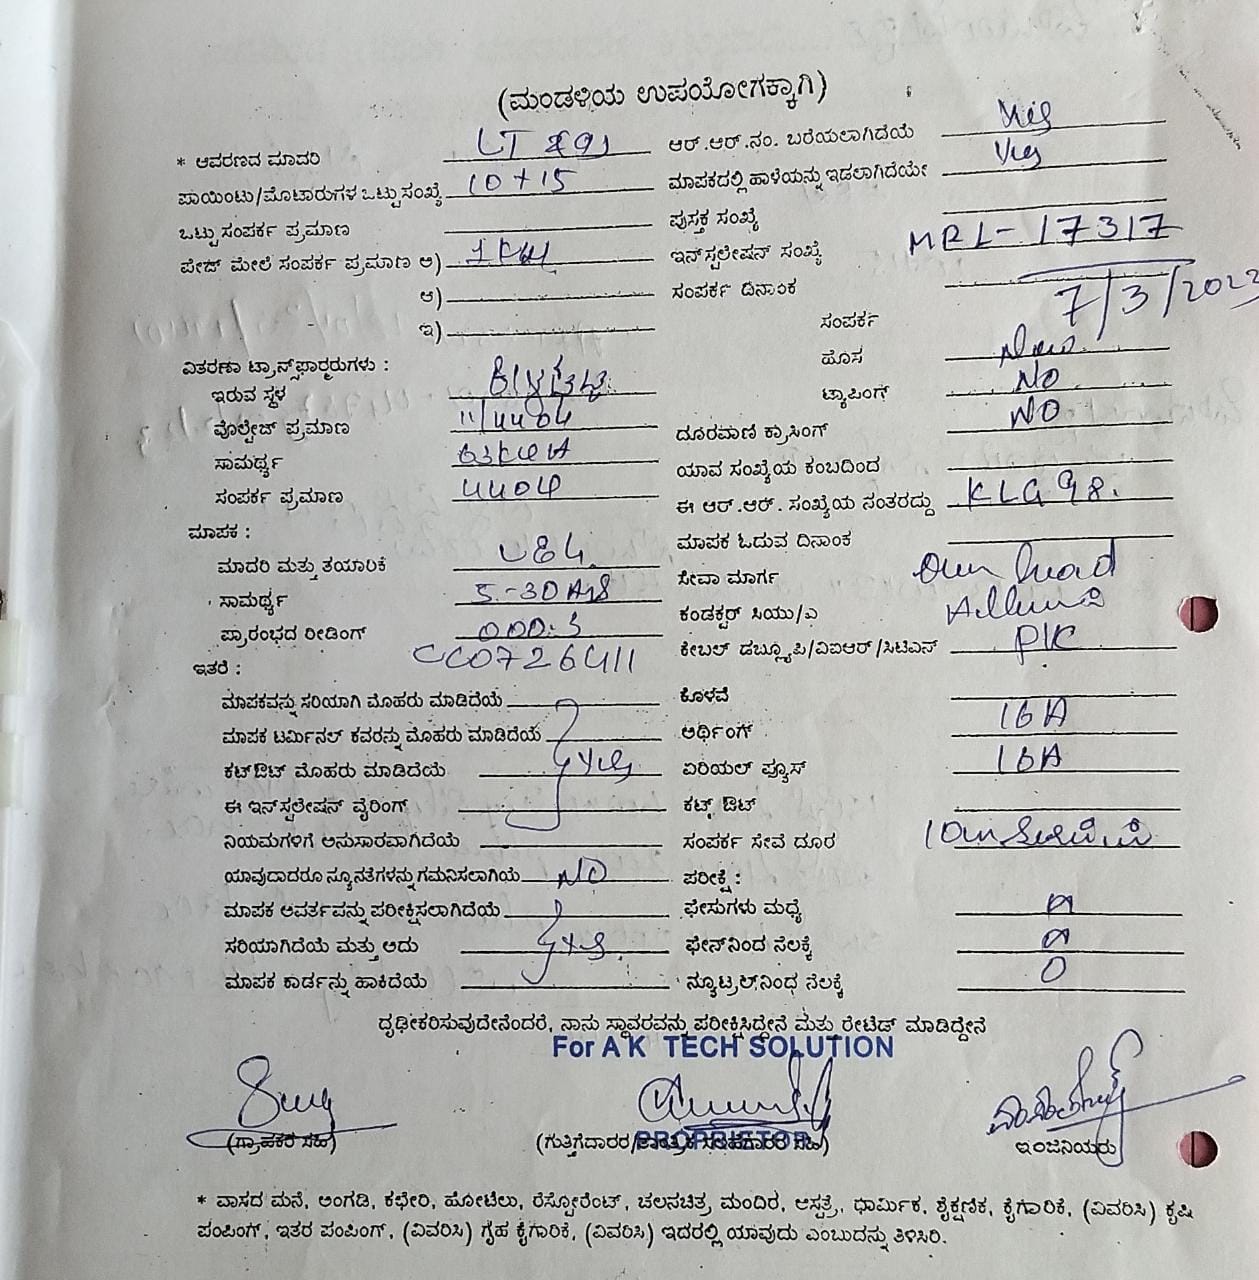 (ಮಂಡಳಿಯ ಉಪಯೋಗಕ್ಕಾಗಿ)
* ಆವರಣದ ಮಾದರಿ LT ಆರ್.ಆರ್.ನಂ. ಬರೆಯಲಾಗಿದೆಯೆ Yes
ಪಾಯಿಂಟು/ಮೊಟಾರುಗಳ ಒಟ್ಟು ಸಂಖ್ಯೆ 10 + 15 ಮಾಪಕದಲ್ಲಿ ಹಾಳೆಯನ್ನು ಇಡಲಾಗಿದೆಯೇ Yes
ಒಟ್ಟು ಸಂಪರ್ಕ ಪ್ರಮಾಣ ಪುಸ್ತಕ ಸಂಖ್ಯೆ
ಪೇಜ್ ಮೇಲೆ ಸಂಪರ್ಕ ಪ್ರಮಾಣ ಅ) 1 KW ಇನ್‌ಸ್ಟಲೇಷನ್ ಸಂಖ್ಯೆ MRL-17317
ಆ) ಸಂಪರ್ಕ ದಿನಾಂಕ 7/3/2023
ಇ) ಸಂಪರ್ಕ
ವಿತರಣಾ ಟ್ರಾನ್ಸ್‌ಫಾರ್ಮರುಗಳು : ಹೊಸ New
ಇರುವ ಸ್ಥಳ ಟ್ಯಾಪಿಂಗ್ NO
ವೊಲ್ಟೇಜ್ ಪ್ರಮಾಣ 11/440V ದೂರವಾಣಿ ಕ್ರಾಸಿಂಗ್ NO
ಸಾಮರ್ಥ್ಯ 63KVA ಯಾವ ಸಂಖ್ಯೆಯ ಕಂಬದಿಂದ
ಸಂಪರ್ಕ ಪ್ರಮಾಣ 440V ಈ ಆರ್.ಆರ್. ಸಂಖ್ಯೆಯ ನಂತರದ್ದು KLG 98.
ಮಾಪಕ : ಮಾಪಕ ಓದುವ ದಿನಾಂಕ
ಮಾದರಿ ಮತ್ತು ತಯಾರಿಕೆ ಸೇವಾ ಮಾರ್ಗ Over head
ಸಾಮರ್ಥ್ಯ 5-30 Amps ಕಂಡಕ್ಟರ್ ಸಿಯು/ಎ
ಪ್ರಾರಂಭದ ರೀಡಿಂಗ್ 000.3 ಕೇಬಲ್ ಡಬ್ಲ್ಯೂಪಿ/ವಿಐಆರ್/ಸಿಟಿಎಸ್ PVC
ಇತರೆ : CC0726411
ಮಾಪಕವನ್ನು ಸರಿಯಾಗಿ ಮೊಹರು ಮಾಡಿದೆಯೆ ಕೊಳವೆ
ಮಾಪಕ ಟರ್ಮಿನಲ್ ಕವರನ್ನು ಮೊಹರು ಮಾಡಿದೆಯೆ ಅರ್ಥಿಂಗ್ 16 A
ಕಟ್‌ಔಟ್ ಮೊಹರು ಮಾಡಿದೆಯೆ Yes ಏರಿಯಲ್ ಫ್ಯೂಸ್ 16A
ಈ ಇನ್‌ಸ್ಟಲೇಷನ್ ವೈರಿಂಗ್ ಕಟ್ಔಟ್
ನಿಯಮಗಳಿಗೆ ಅನುಸಾರವಾಗಿದೆಯೆ ಸಂಪರ್ಕ ಸೇವೆ ದೂರ
ಯಾವುದಾದರೂ ನ್ಯೂನತೆಗಳನ್ನು ಗಮನಿಸಲಾಗಿಯೆ NO ಪರೀಕ್ಷೆ :
ಮಾಪಕ ಆವರ್ತವನ್ನು ಪರೀಕ್ಷಿಸಲಾಗಿದೆಯೆ ಫೇಸುಗಳು ಮಧ್ಯೆ
ಸರಿಯಾಗಿದೆಯೆ ಮತ್ತು ಅದು Yes. ಫೇಸ್‌ನಿಂದ ನೆಲಕ್ಕೆ
ಮಾಪಕ ಕಾರ್ಡನ್ನು ಹಾಕಿದೆಯೆ ನ್ಯೂಟ್ರಲ್‌ನಿಂಧ ನೆಲಕ್ಕೆ 0
ದೃಢೀಕರಿಸುವುದೇನೆಂದರೆ, ನಾನು ಸ್ಥಾವರವನ್ನು ಪರೀಕ್ಷಿಸಿದ್ದೇನೆ ಮತು ರೇಟೆಡ್ ಮಾಡಿದ್ದೇನೆ
For A K TECH SOLUTION
(ಗ್ರಾಹಕರ ಸಹಿ) (ಗುತ್ತಿಗೆದಾರರ/ಸಹಿ) ಇಂಜಿನಿಯರು
PROPRIETOR
* ವಾಸದ ಮನೆ, ಅಂಗಡಿ, ಕಛೇರಿ, ಹೋಟೆಲು, ರೆಸ್ಟೋರೆಂಟ್, ಚಲನಚಿತ್ರ, ಮಂದಿರ, ಆಸ್ಪತ್ರೆ, ಧಾರ್ಮಿಕ, ಶೈಕ್ಷಣಿಕ, ಕೈಗಾರಿಕೆ, (ವಿವರಿಸಿ) ಕೃಷಿ
ಪಂಪಿಂಗ್, ಇತರ ಪಂಪಿಂಗ್, (ವಿವರಿಸಿ) ಗೃಹ ಕೈಗಾರಿಕೆ, (ವಿವರಿಸಿ) ಇದರಲ್ಲಿ ಯಾವುದು ಎಂಬುದನ್ನು ತಿಳಿಸಿರಿ.